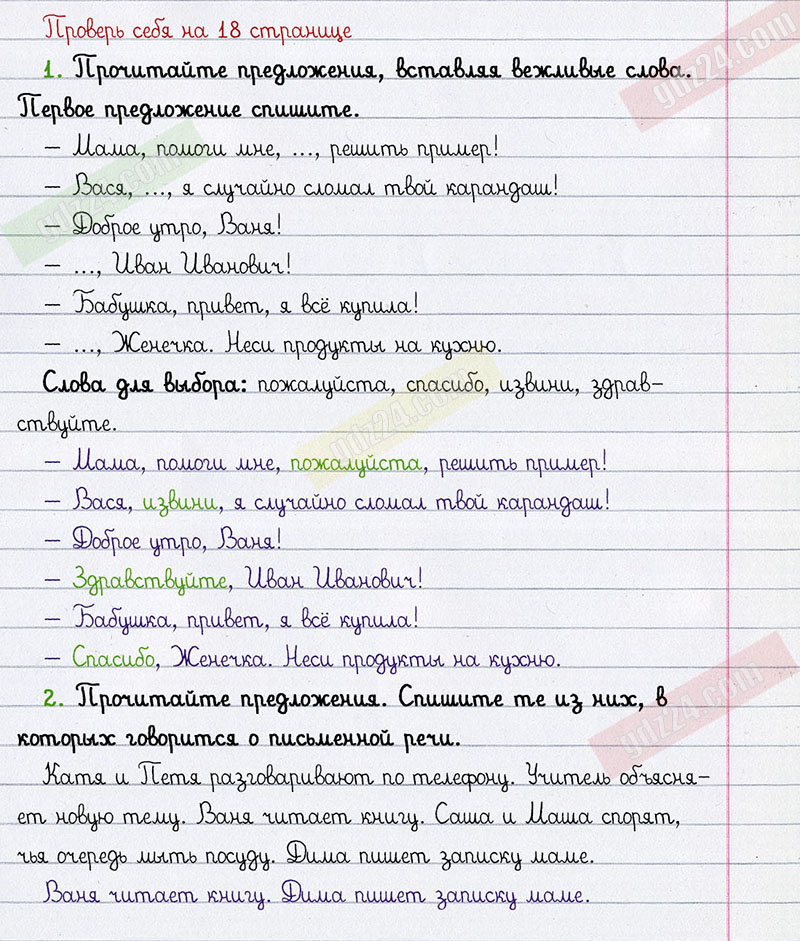 Проверь себя на 18 странице
1. Прочитайте предложения, вставляя вежливые слова.
Первое предложение спишите.
— Мама, помоги мне, ..., решить пример!
— Вася, ..., я случайно сломал твой карандаш!
— Доброе утро, Ваня!
— ..., Иван Иванович!
— Бабушка, привет, я всё купила!
— ..., Женечка. Неси продукты на кухню.
Слова для выбора: пожалуйста, спасибо, извини, здрав-
ствуйте.
— Мама, помоги мне, пожалуйста, решить пример!
— Вася, извини, я случайно сломал твой карандаш!
— Доброе утро, Ваня!
— Здравствуйте, Иван Иванович!
— Бабушка, привет, я всё купила!
— Спасибо, Женечка. Неси продукты на кухню.
2. Прочитайте предложения. Спишите те из них, в
которых говорится о письменной речи.
Катя и Петя разговаривают по телефону. Учитель объясня-
ет новую тему. Ваня читает книгу. Саша и Маша спорят,
чья очередь мыть посуду. Дима пишет записку маме.
Ваня читает книгу. Дима пишет записку маме.
gdz24.com
gdz24.com
gdz24.com
gdz24.com